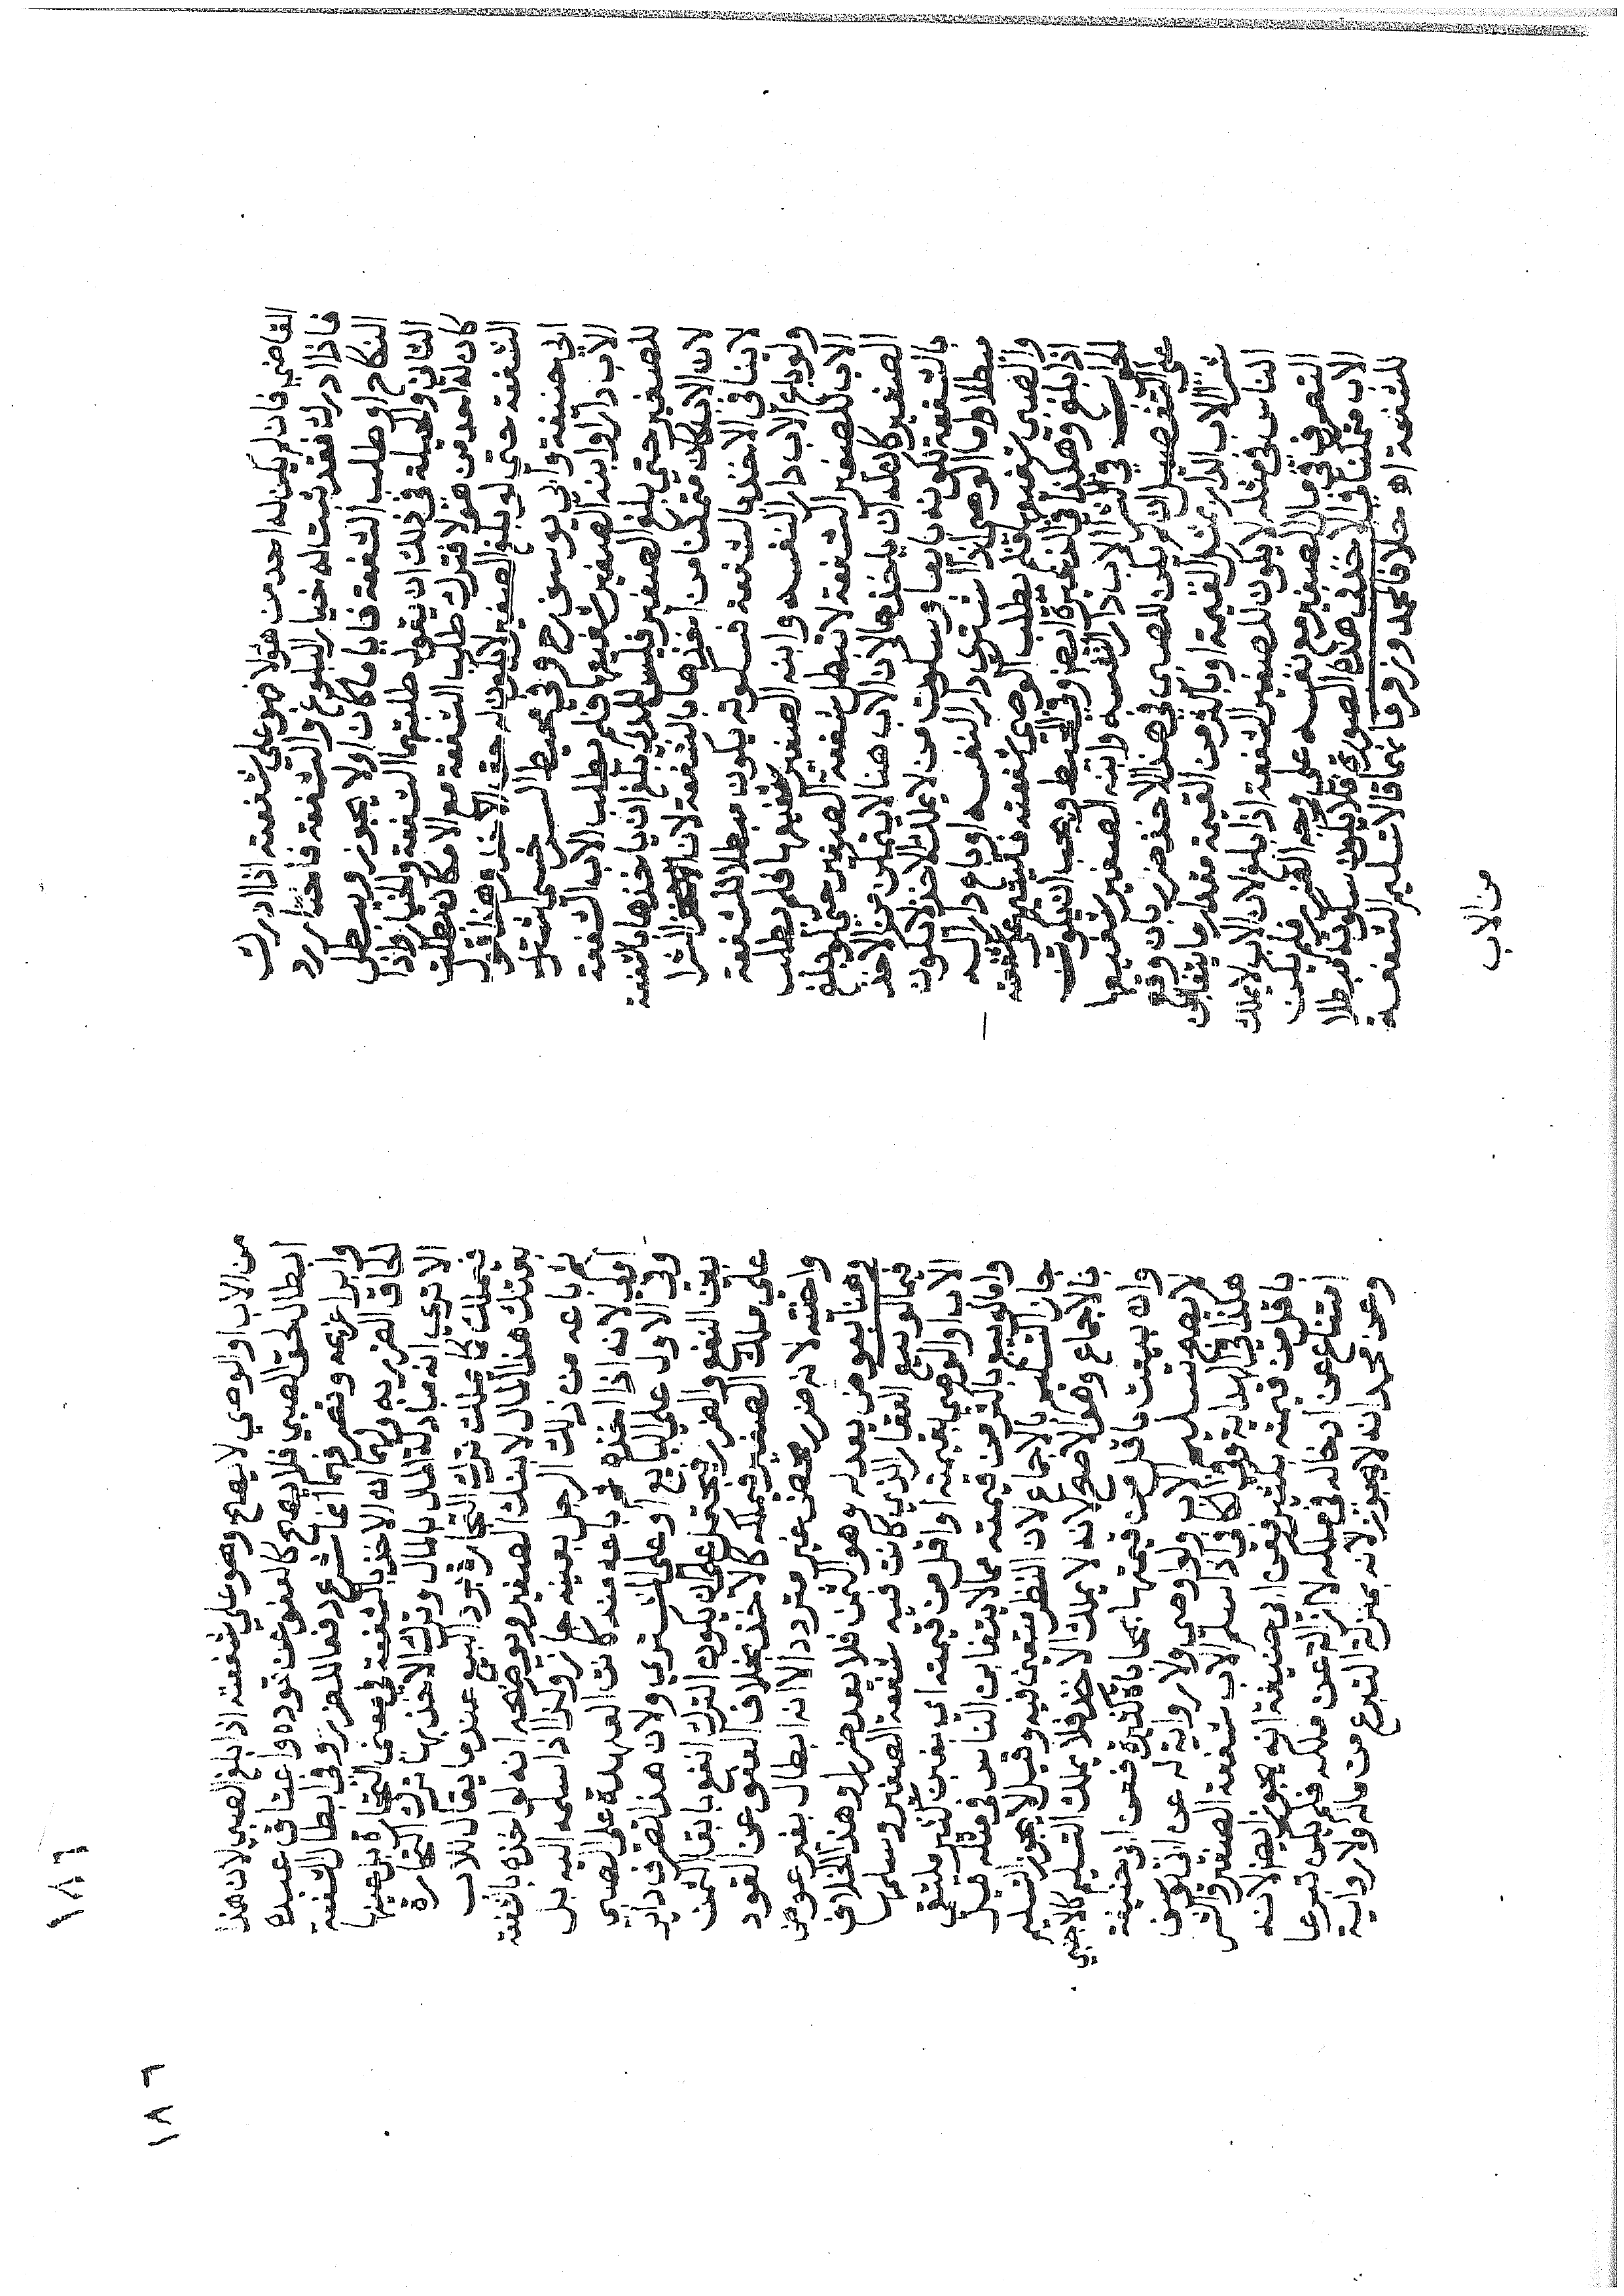 القاضي فان لم يكن له احد من هؤلا فهو على شفعته اذا ادرك
فاذا ادرك فقد ثبت له خيار البلوغ والشفعة فاختار رد
النكاح او طلب الشفعة فايا ما كان اولا يجوز ويبطل
الثاني والحيلة في ذلك ان يقول طلبتهما الشفعة والخيار واذا
كان له احد من هؤلا فترك طلب الشفعة مع الامكان بطلت
الشفعة حتى لو بلغ الصغير لا يكون له حق الاخذ وهذا قول
ابي حنيفة وابي يوسف رح وفي محيط السرخسي اشترى
الاب دارا وابنه الصغير شفيعها فلم يطلب الاب الشفعة
للصغير حتى بلغ الصغير فليس للذي بلغ ان ياخذها بالشفعة
لان الاب كان متمكنا من اخذها بالشفعة لان الشرا
لا ينافي الاخذ بالشفعة فسكوته يكون مبطلا للشفعة
ولو باع الاب دارا لنفسه وابنه الصغير شفيعها فلم يطلب
الاب للصغير الشفعة لا تبطل شفعة الصغير حتى لو بلغ
الصغير كان له ان ياخذها لان الاب هنا لا يتمكن من الاخذ
بالشفعة لكونه بايعا وسكوت من لا يملك الاخذ لا يكون
مبطلا واما الوصي اذا اشترى دارا لنفسه او باع دارا له
والصبي شفيعها فلم يطلب الوصي شفعته فاليتيم على شفعته
اذا بلغ وهكذا في الذخيرة ايضا وفي المحيط ويجب ان يكون
الجواب في شرا الاب دارا لنفسه وابنه الصغير شفيعها
على التفصيل ان لم يكن للصبي في هذا الاخذ ضرر بان وقع
شرا الاب الدار بمثل القيمة او باكثر من القيمة مقدار ما يتغابن
الناس في مثله لا يكون للصغير الشفعة اذا بلغ لان الاب لا يملك
التصرف في مال الصغير مع نفسه على وجه الضرر فلم يكن
الاب متمكنا في الاخذ في هذه الصورة فلا يكون سكوته مبطلا
للشفعة اه خلافا لمحمد وزفر فانهما قالا تسليم الشفعة
من الاب
من الاب او الوصي لا يصح وهو على شفعته اذا بلغ الصبي لان هذا
ابطال لحق الصبي فلا يصح كالعفو عن قوده واعتاق عبده
وابرا غريمه وتصرفهما انما شرع دفعا للضرر وفي ابطال الشفعة
الحاق الضرر به ولهما ان الاخذ بالشفعة في معنى التجارة بل عينها
الا ترى انه مبادلة المال بالمال وترك الاخذ بها ترك التجارة
فيملك كما ملك ترك التجارة برد البيع عندما يقال للاب
بعتك هذا المال لابنك الصغير ويوضحه انه لو اخذه بالشفعة
ثم باعه من ذلك الرجل بعينه جاز وكذا اذا سلمه اليه بل
اولى لانه اذا اخذه ثم باعه منه كانت العهدة على الصبي
وفي الاول على البايع او على المشتري ولان هذا تصرف داير
بين النفع والضرر فيحتمل ان يكون الترك انفع بابقا الثمن
على ملك الصغير فيملكه كالاخذ بخلاف العفو عن القود
واخته لانه ضرر محض غير متردد الا انه ابطال بغير عوض
وهنا بعوض يعدله وهو الثمن فلا يعد ضررا وهذا الخلاف
فيما لو بيع العقار الذي كانت فيه شفعة الصغير وسلمها
الاب او الوصي بقيمته او اقل من قيمته اي بغبن كثير ملتقى
واما لو بيع باكثر من قيمته مما لا يتغابن الناس في مثله قيل
جاز التسليم بالاجماع لان النظر متعين فيه وقيل لا يجوز التسليم
بالاجماع وهو الاصح لانه لا يملك الاخذ فلا يملك التسليم كالاجنبي
وان بيعت باقل من قيمتها بمحاباة كثيرة فعن ابي حنيفة
لا يصح تسليم الاب والوصي ولا رواية له عن ابي يوسف
هكذا في الهداية وفي الكافي اذا سلم الاب شفعة الصغير والشرا
باقل من قيمته بكثير فعن ابي حنيفة انه يجوز ايضا لانه
امتناع عن ادخاله في ملكه لا ازالة عن ملكه فلم يكن تبرعا
وعن محمد انه لا يجوز لانه بمنزلة التبرع من ماله ولا رواية
١٨٦
١٨٦